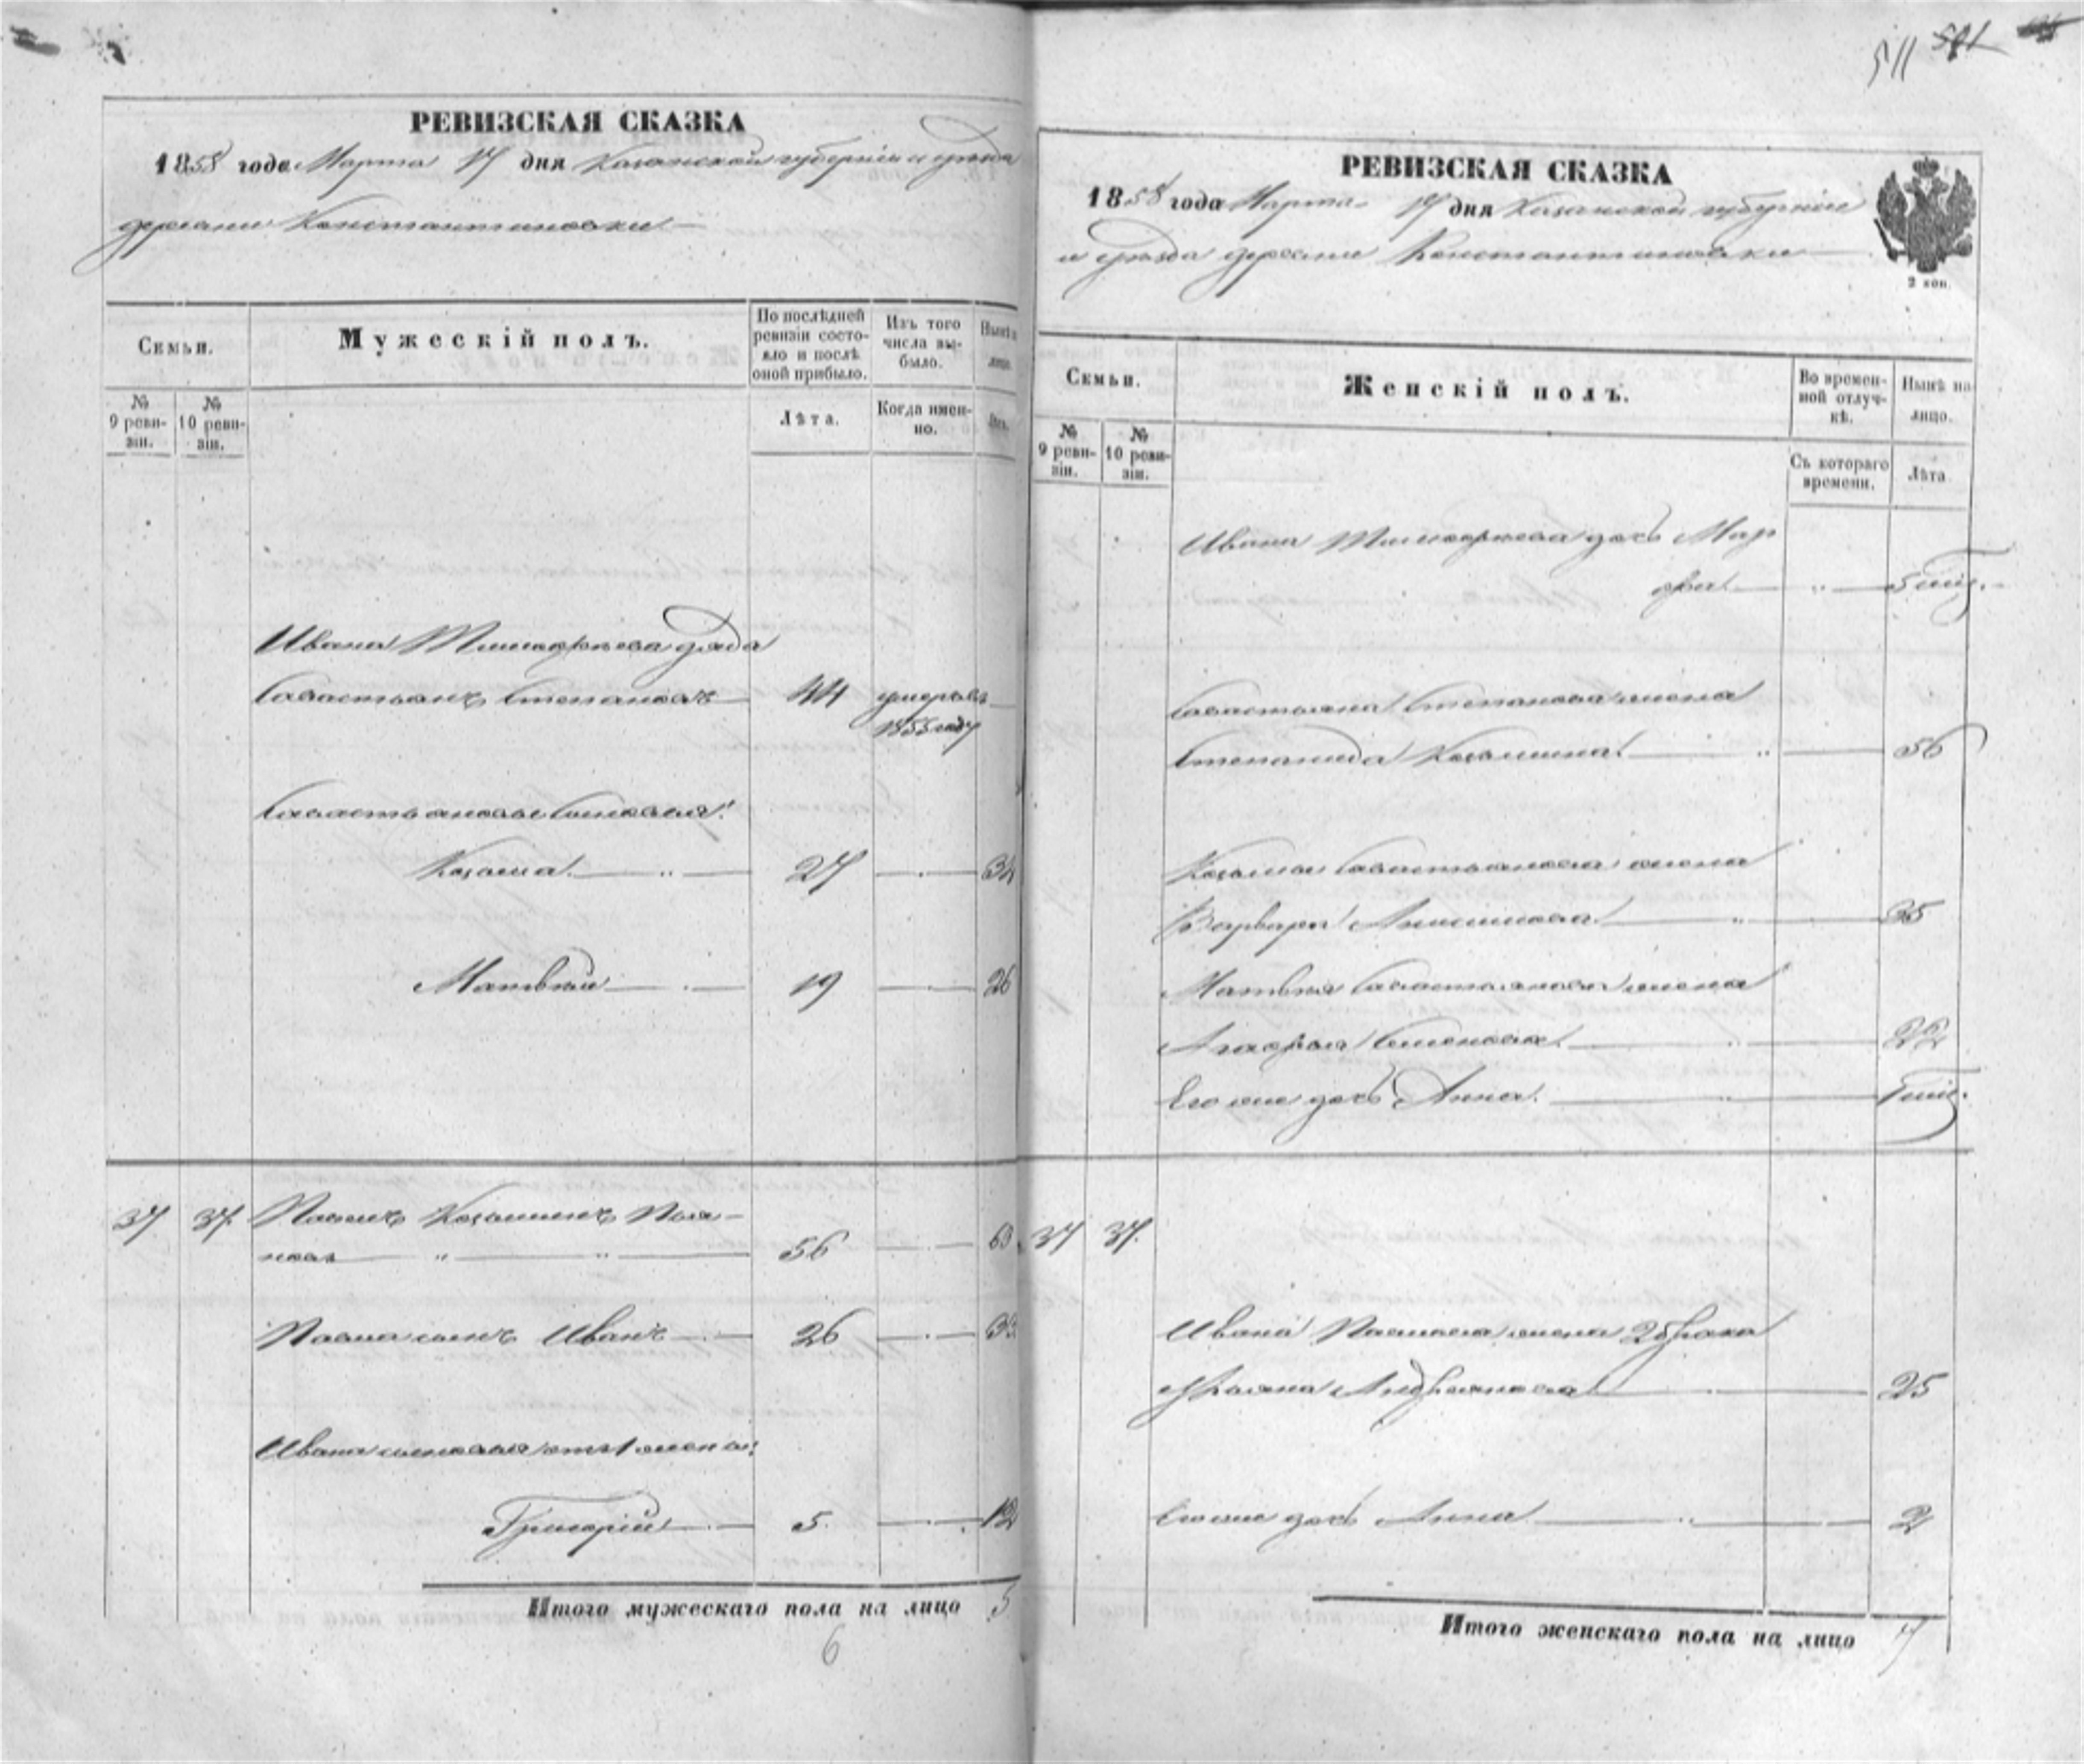 511 501
РЕВИЗСКАЯ СКАЗКА
1858 года Марта 17 дня Казанской губернии и уезда
деревни Константиновки
Семьи.
Мужескій полъ.
По послѣдней ревизіи состояло и послѣ оной прибыло.
Изъ того числа выбыло.
Нынѣ на лицо.
№ 9 ревизіи.
№ 10 ревизіи.
Лѣта.
Когда именно.
Лѣта.
Ивана Тимофеева дядя
Савастьянъ Степановъ 44 умеръ въ
1855 году
Савастьяновы сыновья:
Козьма 27 34
Матвѣй 19 26
37 37 Павелъ Козьминъ
56 63
Павла сынъ Иванъ 26 33
Ивана сыновья от 1 жены:
Григорій 5 12
Итого мужескаго пола на лицо 5
6
РЕВИЗСКАЯ СКАЗКА
1858 года Марта 17 дня Казанской губерніи
и уезда деревни Константиновки
2 коп.
Семьи.
Женскій полъ.
Во временной отлучкѣ.
Нынѣ на лицо.
№ 9 ревизіи.
№ 10 ревизіи.
Съ котораго времени.
Лѣта.
Ивана Тимофеева дочь Мар
фа 5 мѣц.
Савастьяна Степанова жена
Степанида Козьмина 56
Козьмы Савастьянова жена
Варвара Анисимова 35
Матвѣя Савастьянова жена
Агафья Семенова 22
Его же дочь Анна мѣц.
37 37
Ивана Павлова жена 2 брака
Ульяна Андреянова 25
Его же дочь Анна 2
Итого женскаго пола на лицо 7